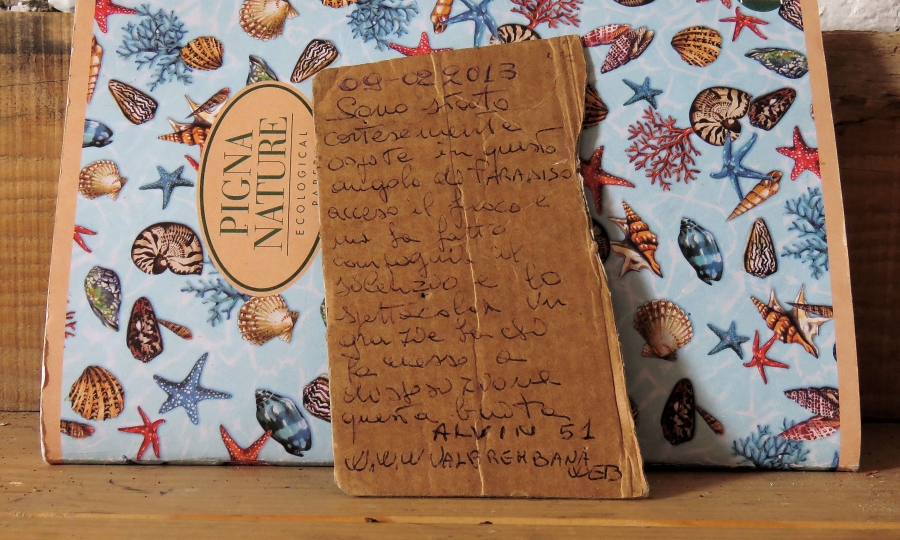 PIGNA
NATURE
ECOLOGICAL
09-02 2013
Sono stato
cortesemente
ospite in questo
angolo di PARADISO
acceso il fuoco e
mi ha fatto
compagnia il
silenzio e lo
spettacolo Un
grazie a chi
ha messo a
disposizione
questa baita
ALVIN 51
W.W.W VALBREMBANA
WEB